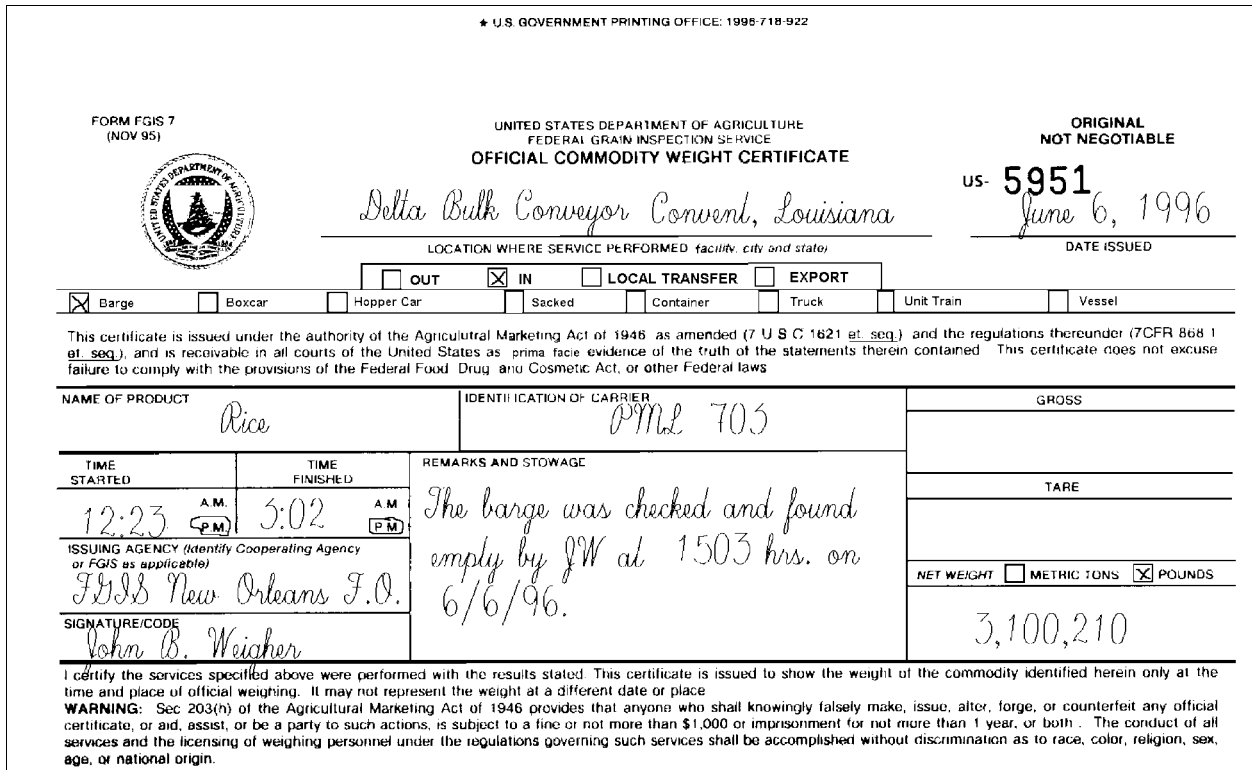 ★ U.S. GOVERNMENT PRINTING OFFICE: 1996-718-922
FORM FGIS 7
(NOV 95)
UNITED STATES DEPARTMENT OF AGRICULTURE
FEDERAL GRAIN INSPECTION SERVICE
OFFICIAL COMMODITY WEIGHT CERTIFICATE
ORIGINAL
NOT NEGOTIABLE
UNITED STATES DEPARTMENT OF AGRICULTURE
US- 5951
Delta Bulk Conveyor Convent, Louisiana
June 6, 1996
LOCATION WHERE SERVICE PERFORMED (facility, city and state)
DATE ISSUED
OUT IN LOCAL TRANSFER EXPORT
Barge Boxcar Hopper Car Sacked Container Truck Unit Train Vessel
This certificate is issued under the authority of the Agriculutral Marketing Act of 1946 as amended (7 U S C 1621 et. seq.) and the regulations thereunder (7CFR 868 1
et. seq.), and is receivable in all courts of the United States as prima facie evidence of the truth of the statements therein contained This certificate does not excuse
failure to comply with the provisions of the Federal Food Drug and Cosmetic Act, or other Federal laws
NAME OF PRODUCT
Rice
IDENTIFICATION OF CARRIER
PML 703
GROSS
TIME STARTED
12:23 A.M. P.M.
TIME FINISHED
3:02 A.M P M
REMARKS AND STOWAGE
The barge was checked and found
empty by JW at 1503 hrs. on
6/6/96.
TARE
ISSUING AGENCY (Identify Cooperating Agency
or FGIS as applicable)
FGIS New Orleans F.O.
NET WEIGHT METRIC TONS POUNDS
3,100,210
SIGNATURE/CODE
John B. Weigher
I certify the services specified above were performed with the results stated. This certificate is issued to show the weight of the commodity identified herein only at the
time and place of official weighing. It may not represent the weight at a different date or place
WARNING: Sec 203(h) of the Agricultural Marketing Act of 1946 provides that anyone who shall knowingly falsely make, issue, alter, forge, or counterfeit any official
certificate, or aid, assist, or be a party to such actions, is subject to a fine or not more than $1,000 or imprisonment for not more than 1 year, or both . The conduct of all
services and the licensing of weighing personnel under the regulations governing such services shall be accomplished without discrimination as to race, color, religion, sex,
age, or national origin.